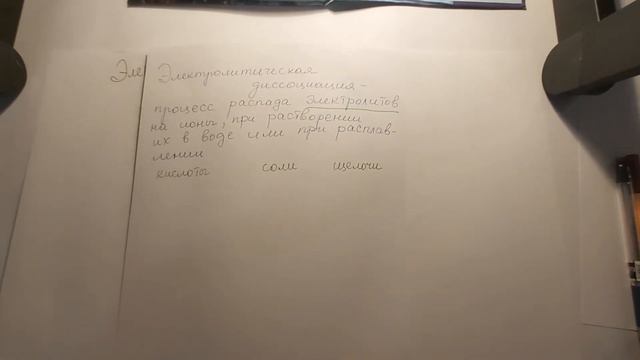 Эле
Электролитическая
диссоциация -
процесс распада электролитов
на ионы, при растворении
их в воде или при расплав-
лении
кислоты соли щелочи